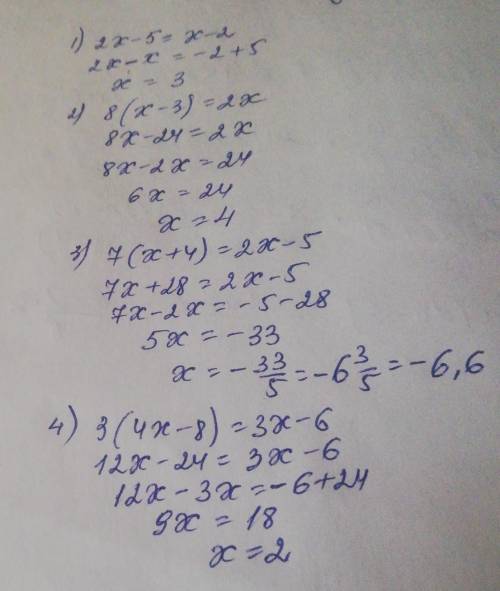 1) 2x-5=x-2
2x-x=-2+5
x=3
2) 8(x-3)=2x
8x-24=2x
8x-2x=24
6x=24
x=4
3) 7(x+4)=2x-5
7x+28=2x-5
7x-2x=-5-28
5x=-33
x=-33/5=-6 3/5=-6,6
4) 3(4x-8)=3x-6
12x-24=3x-6
12x-3x=-6+24
9x=18
x=2